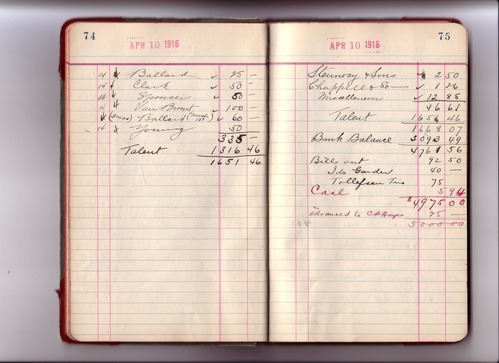 74
APR 10 1916
14 Ballard 75 —
14 Clark 50 —
14 Spencer 50 —
14 Van 100 —
Ballard 60 —
14 Young 50
335 —
Talent 1316 46
1651 46
75
APR 10 1916
Steinway & Sons 2 50
Chappell & 50 — 1 26
Miscellaneous 12 85
46 61
Talent
1668 07
Bank Balance 3093 49
4761 56
Bills out 92 50
Ida Gardner 40 —
Tollefsen Trio 75
Cash 5 94
$4975 00
advanced to 25 —
5000 00